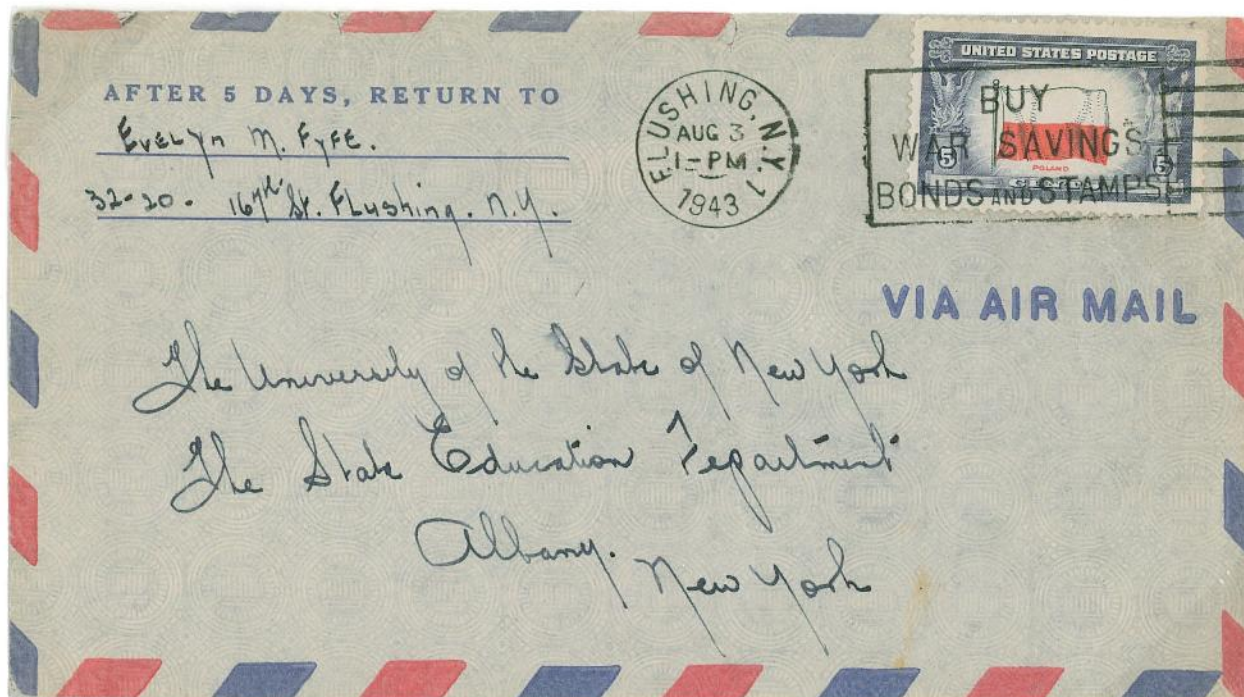 AFTER 5 DAYS, RETURN TO
Evelyn M. Fyfe.
32-20. 167th St. Flushing. N.Y.
FLUSHING, N.Y. 1
AUG 3
1-PM
1943
UNITED STATES POSTAGE
BUY
WAR SAVINGS
BONDS AND STAMPS
5¢
POLAND
5¢
VIA AIR MAIL
The University of the State of New York
The State Education Department
Albany.
New York